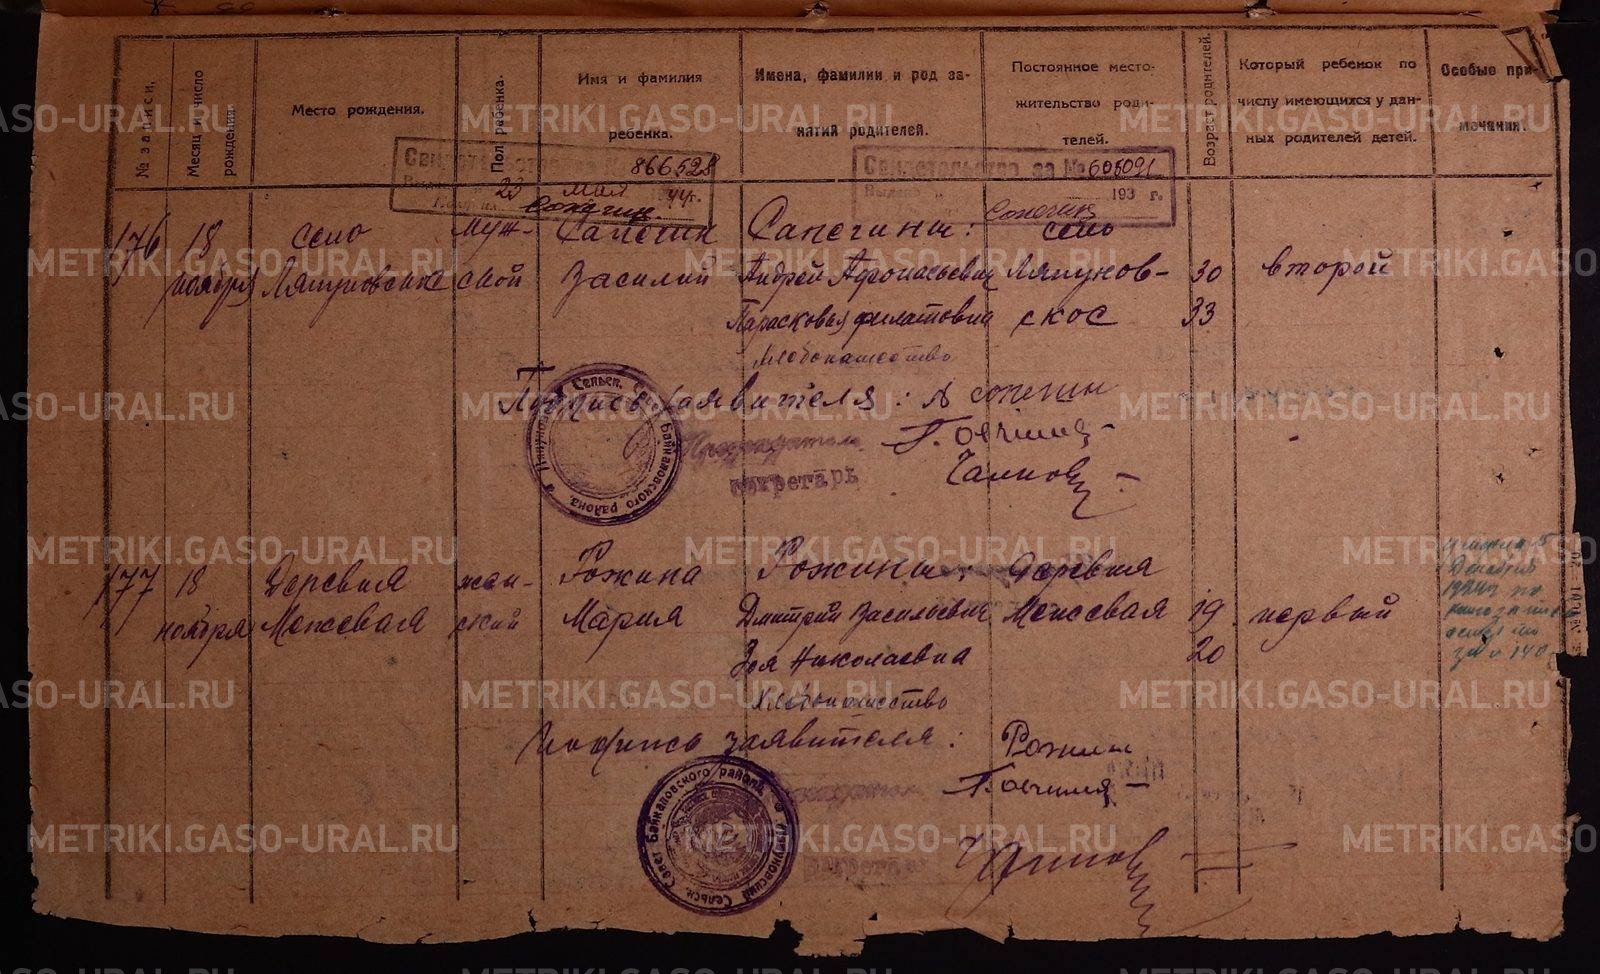 № записи.
Месяц и число рождения.
Место рождения.
Пол ребенка.
Имя и фамилия ребенка.
Имена, фамилии и род занятий родителей.
Постоянное место-
жительство роди-
телей.
Возраст родителей.
Который ребенок по
числу имеющихся у дан-
ных родителей детей.
Особые при-
мечания.
Свидетельство за № 866528
23 мая 44 г.
Свидетельство за № 605091
Выдано 193 г.
176 18 село муж- Сапегин Сапегины: село
ноября Ляпуновское ской Василий Андрей Афонасьевич Ляпунов- 30 второй
Парасковья Филатовна ское 33
Хлебопашество
Подпись заявителя: А Сопегин
Председатель
Секретарь
Сельск. Совет Байкаловского района
177 18 Деревня жен- Рожина Рожины: Деревня
ноября Межевая ский Мария Дмитрий Васильевич Межевая 19 первый
Зоя Николаевна 20
Хлебопашество
Подпись заявителя: Рожин
Председатель
Секретарь
Ляпуновский Сельск. Совет Байкаловского района
METRIKI.GASO-URAL.RU